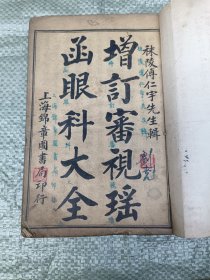 秣陵傅仁宇先生輯
增訂審視瑤
函眼科大全
上海錦章圖書局印行